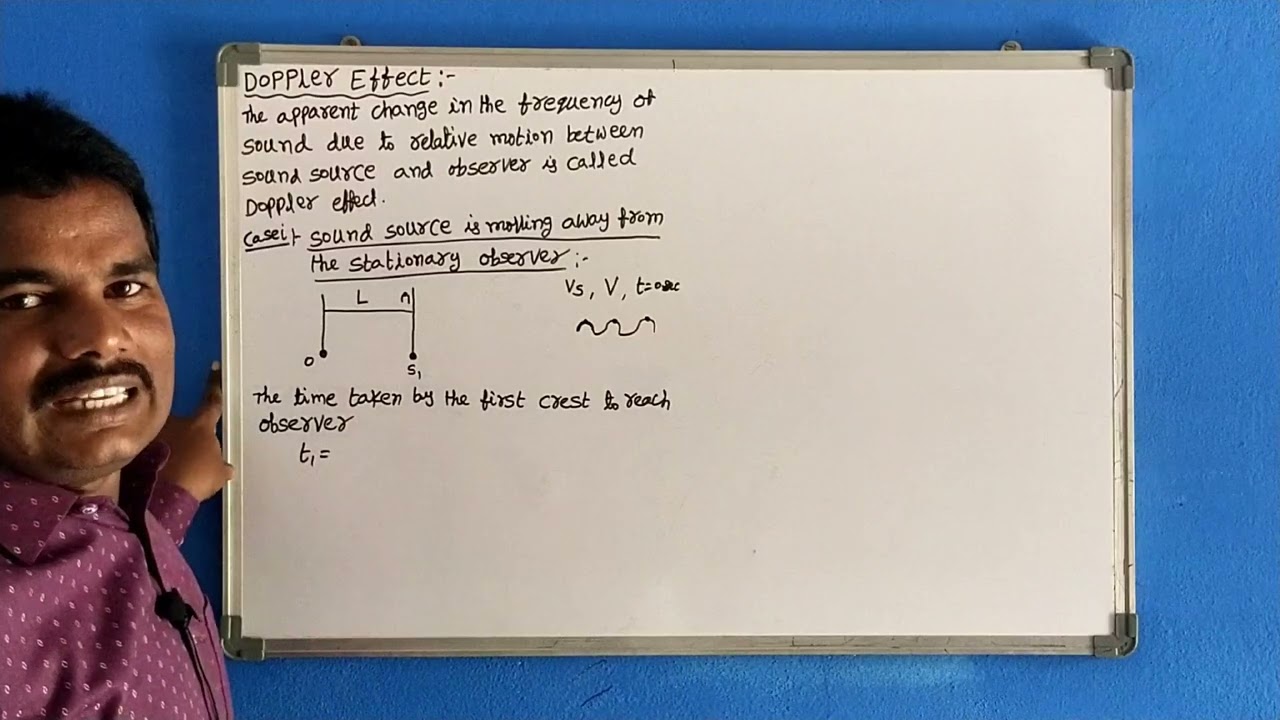 Doppler Effect :-
The apparent change in the frequency of
sound due to relative motion between
sound source and observer is called
Doppler effect.
Case i :- sound source is moving away from
the stationary observer :-
L
Vs , V , t=0sec
O
S1
The time taken by the first crest to reach
observer
t1 =